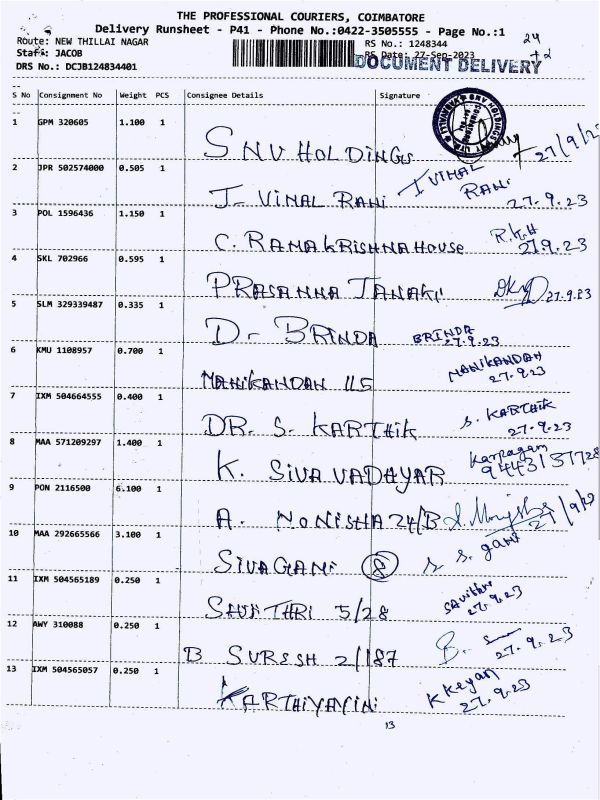 THE PROFESSIONAL COURIERS, COIMBATORE
Delivery Runsheet - P41 - Phone No.:0422-3505555 - Page No.:1
24
+2
Route: NEW THILLAI NAGAR
RS No.: 1248344
Staff: JACOB
RS Date: 27-Sep-2023
DRS No.: DCJB124834401
DOCUMENT DELIVERY
S No Consignment No Weight PCS Consignee Details Signature
1 GPM 320605 1.100 1 SNV HOLDINGS 27/9/23
2 JPR 502574000 0.505 1 J- VIMAL RANI J VIMAL RANI 27.9.23
3 POL 1596436 1.150 1 C. RAMAKRISHNA HOUSE R.K.H 27.9.23
4 SKL 702966 0.595 1 PRASANNA JANAKI 27.9.23
5 SLM 329339487 0.335 1 D- BRINDA BRINDA 27.9.23
6 KMU 1108957 0.700 1 MANIKANDAN 115 MANIKANDAN 27.9.23
7 IXM 504664555 0.400 1 DR. S. KARTHIK S. KARTHIK 27.9.23
8 MAA 571209297 1.400 1 K. SIVA VADAYAR Karpagam 9443137728
9 PON 2116500 6.100 1 A. MONISHA 24/B 27/9/23
10 MAA 292665566 3.100 1 SIVAGAMI 8 S. gami
11 IXM 504565189 0.250 1 SAVITHRI 5/28 Savithri 27.9.23
12 AWY 310088 0.250 1 B SURESH 2/187 27.9.23
13 IXM 504565057 0.250 1 KARTHIYAYINI K Keyan 27.9.23
13